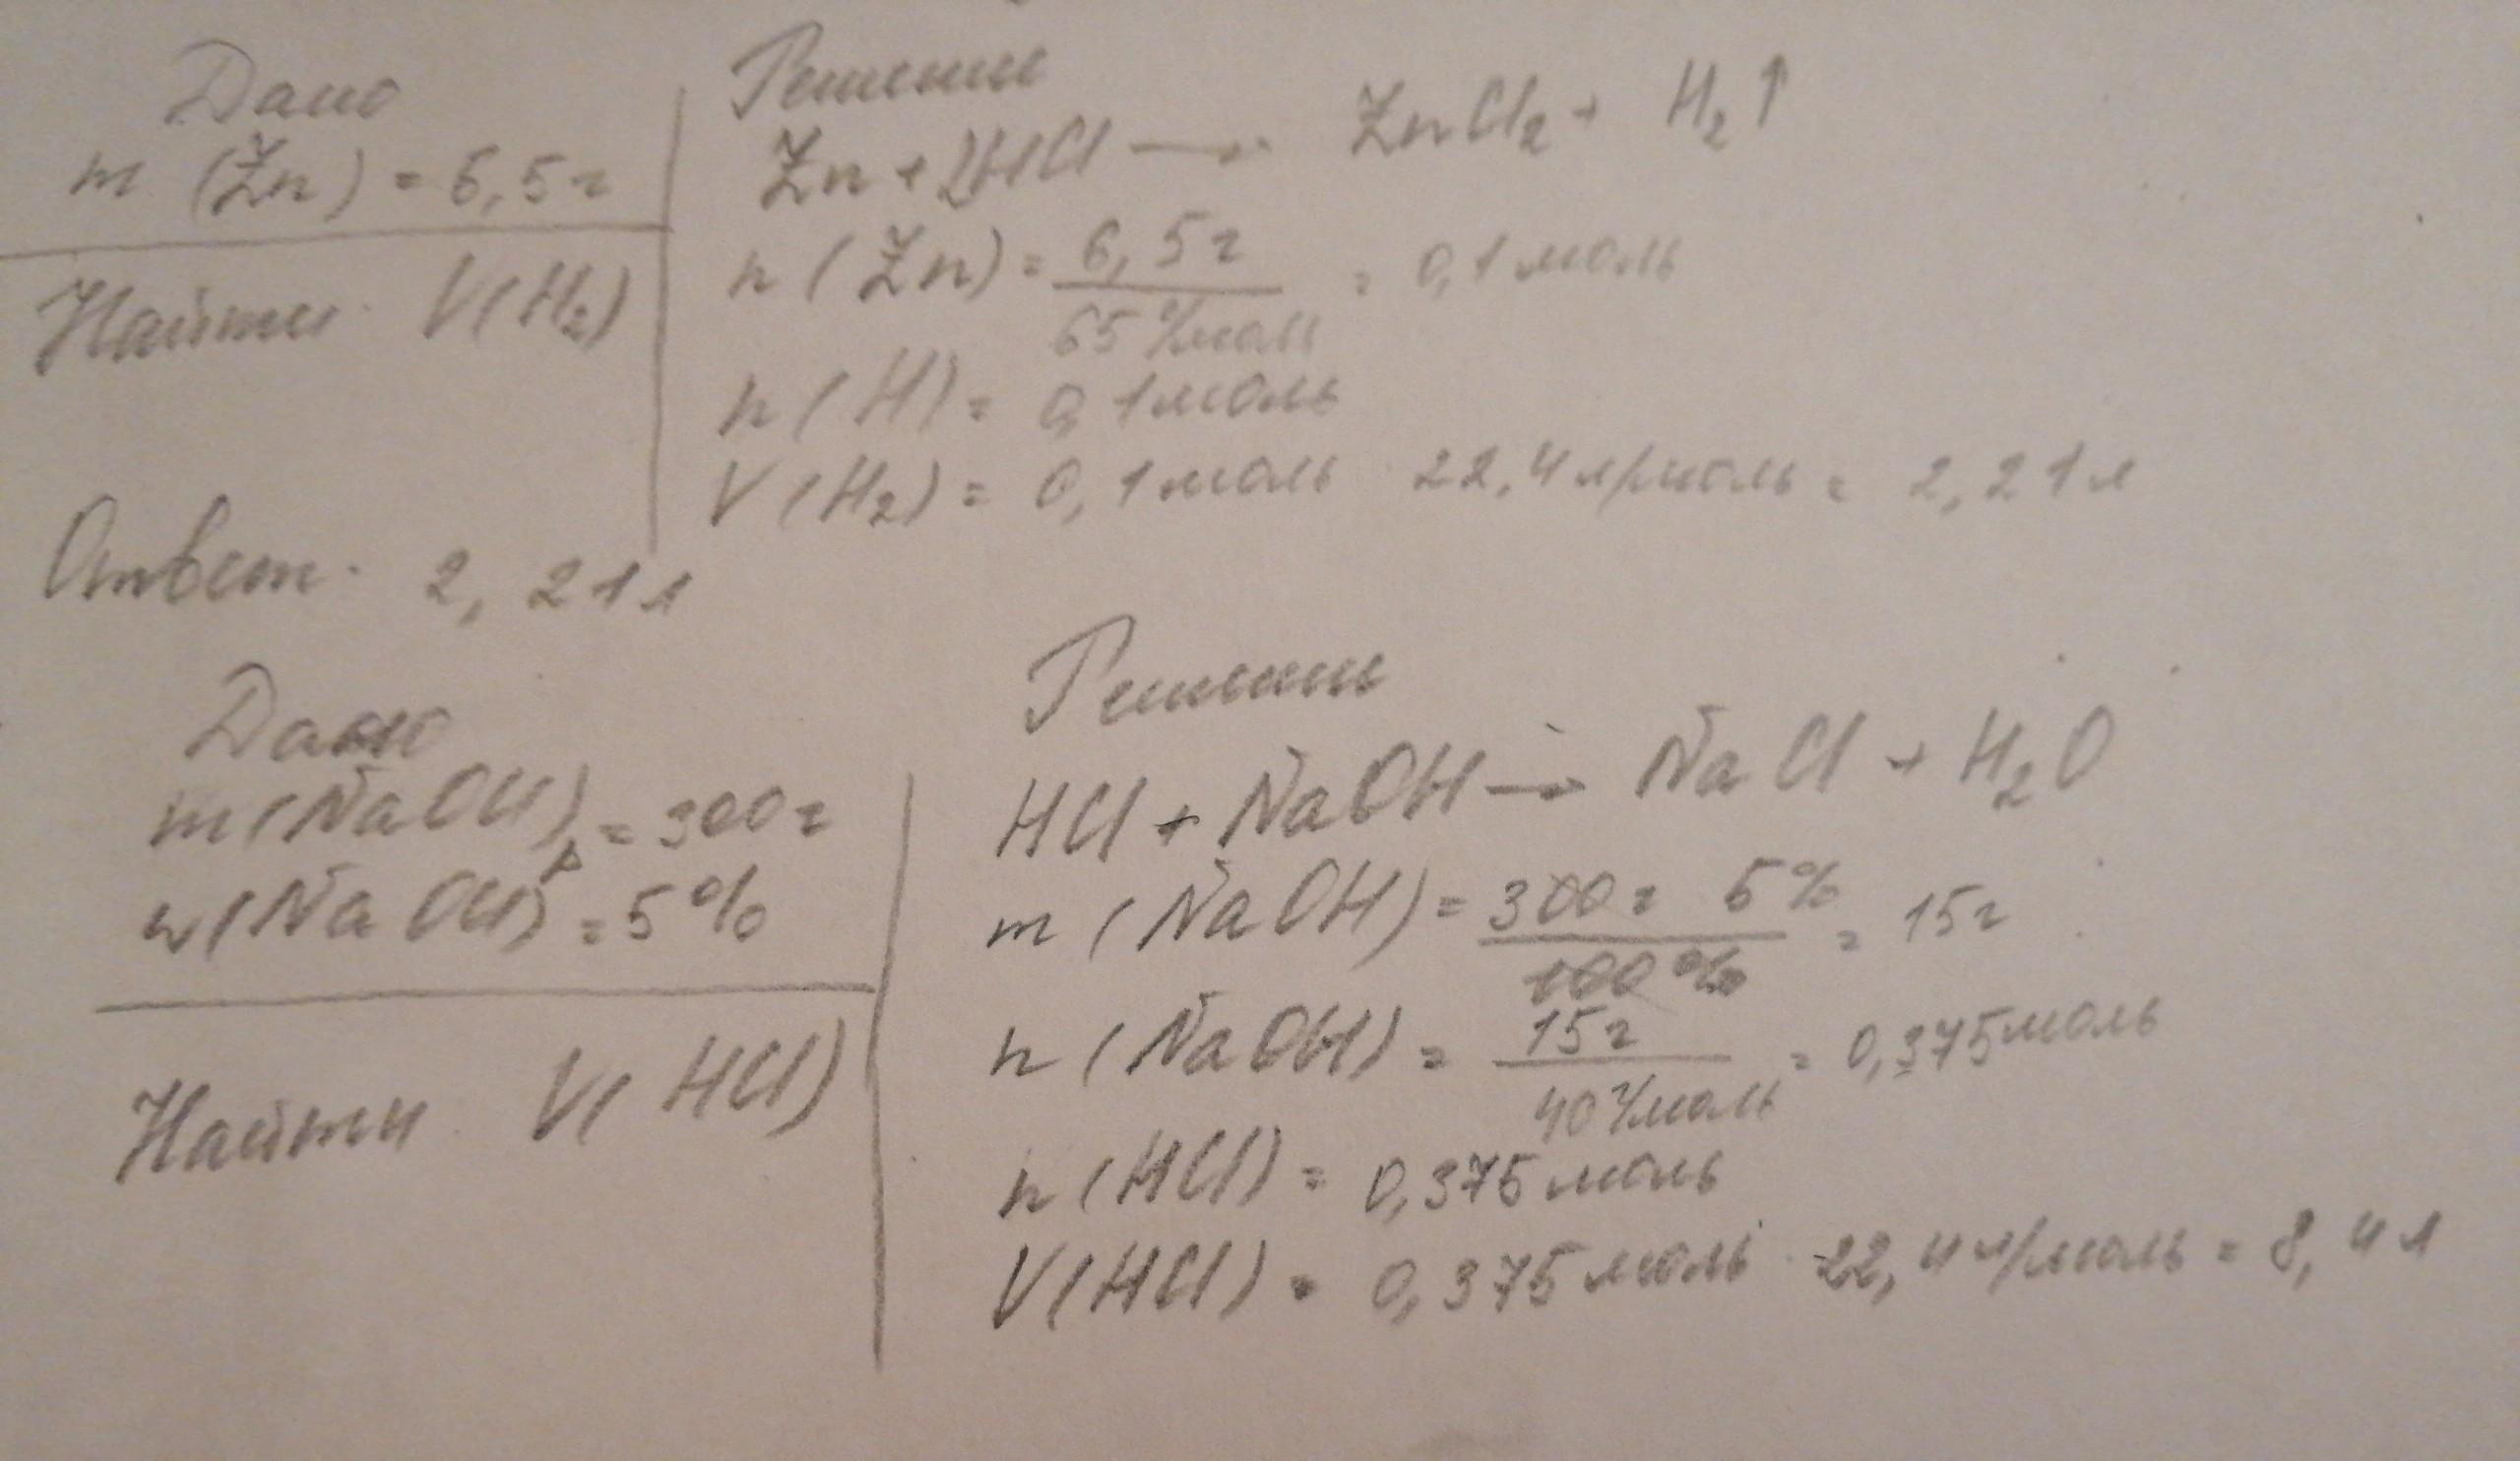 Дано
m (Zn) = 6,5 г
Найти V(H₂)
Решение
Zn + 2HCl → ZnCl₂ + H₂↑
n (Zn) = 6,5 г / 65 г/моль = 0,1 моль
n (H) = 0,1 моль
V (H₂) = 0,1 моль · 22,4 л/моль = 2,21 л
Ответ: 2,21 л
Дано
m (NaOH)р = 300 г
w (NaOH)р = 5%
Найти V(HCl)
Решение
HCl + NaOH → NaCl + H₂O
m (NaOH) = 300 г 5% / 100% = 15 г
n (NaOH) = 15 г / 40 г/моль = 0,375 моль
n (HCl) = 0,375 моль
V(HCl) = 0,375 моль · 22,4 л/моль = 8,4 л